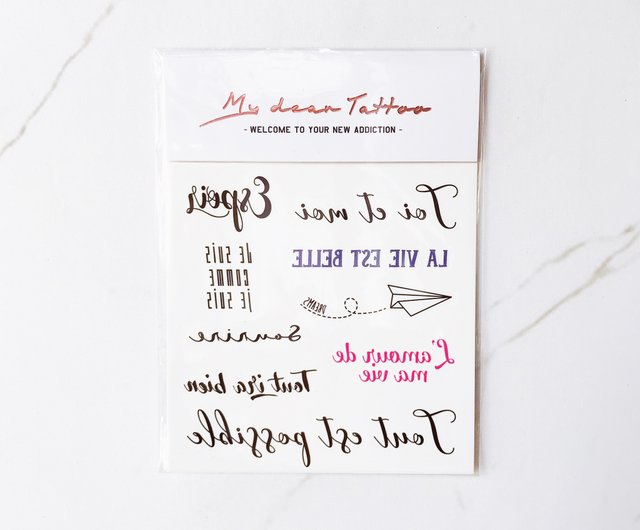 My dear Tattoo
- WELCOME TO YOUR NEW ADDICTION -
Espoir
Toi et moi
je suis
comme
je suis
LA VIE EST BELLE
DREAMS
Sourire
L'amour de
ma vie
Tout ira bien
Tout est possible